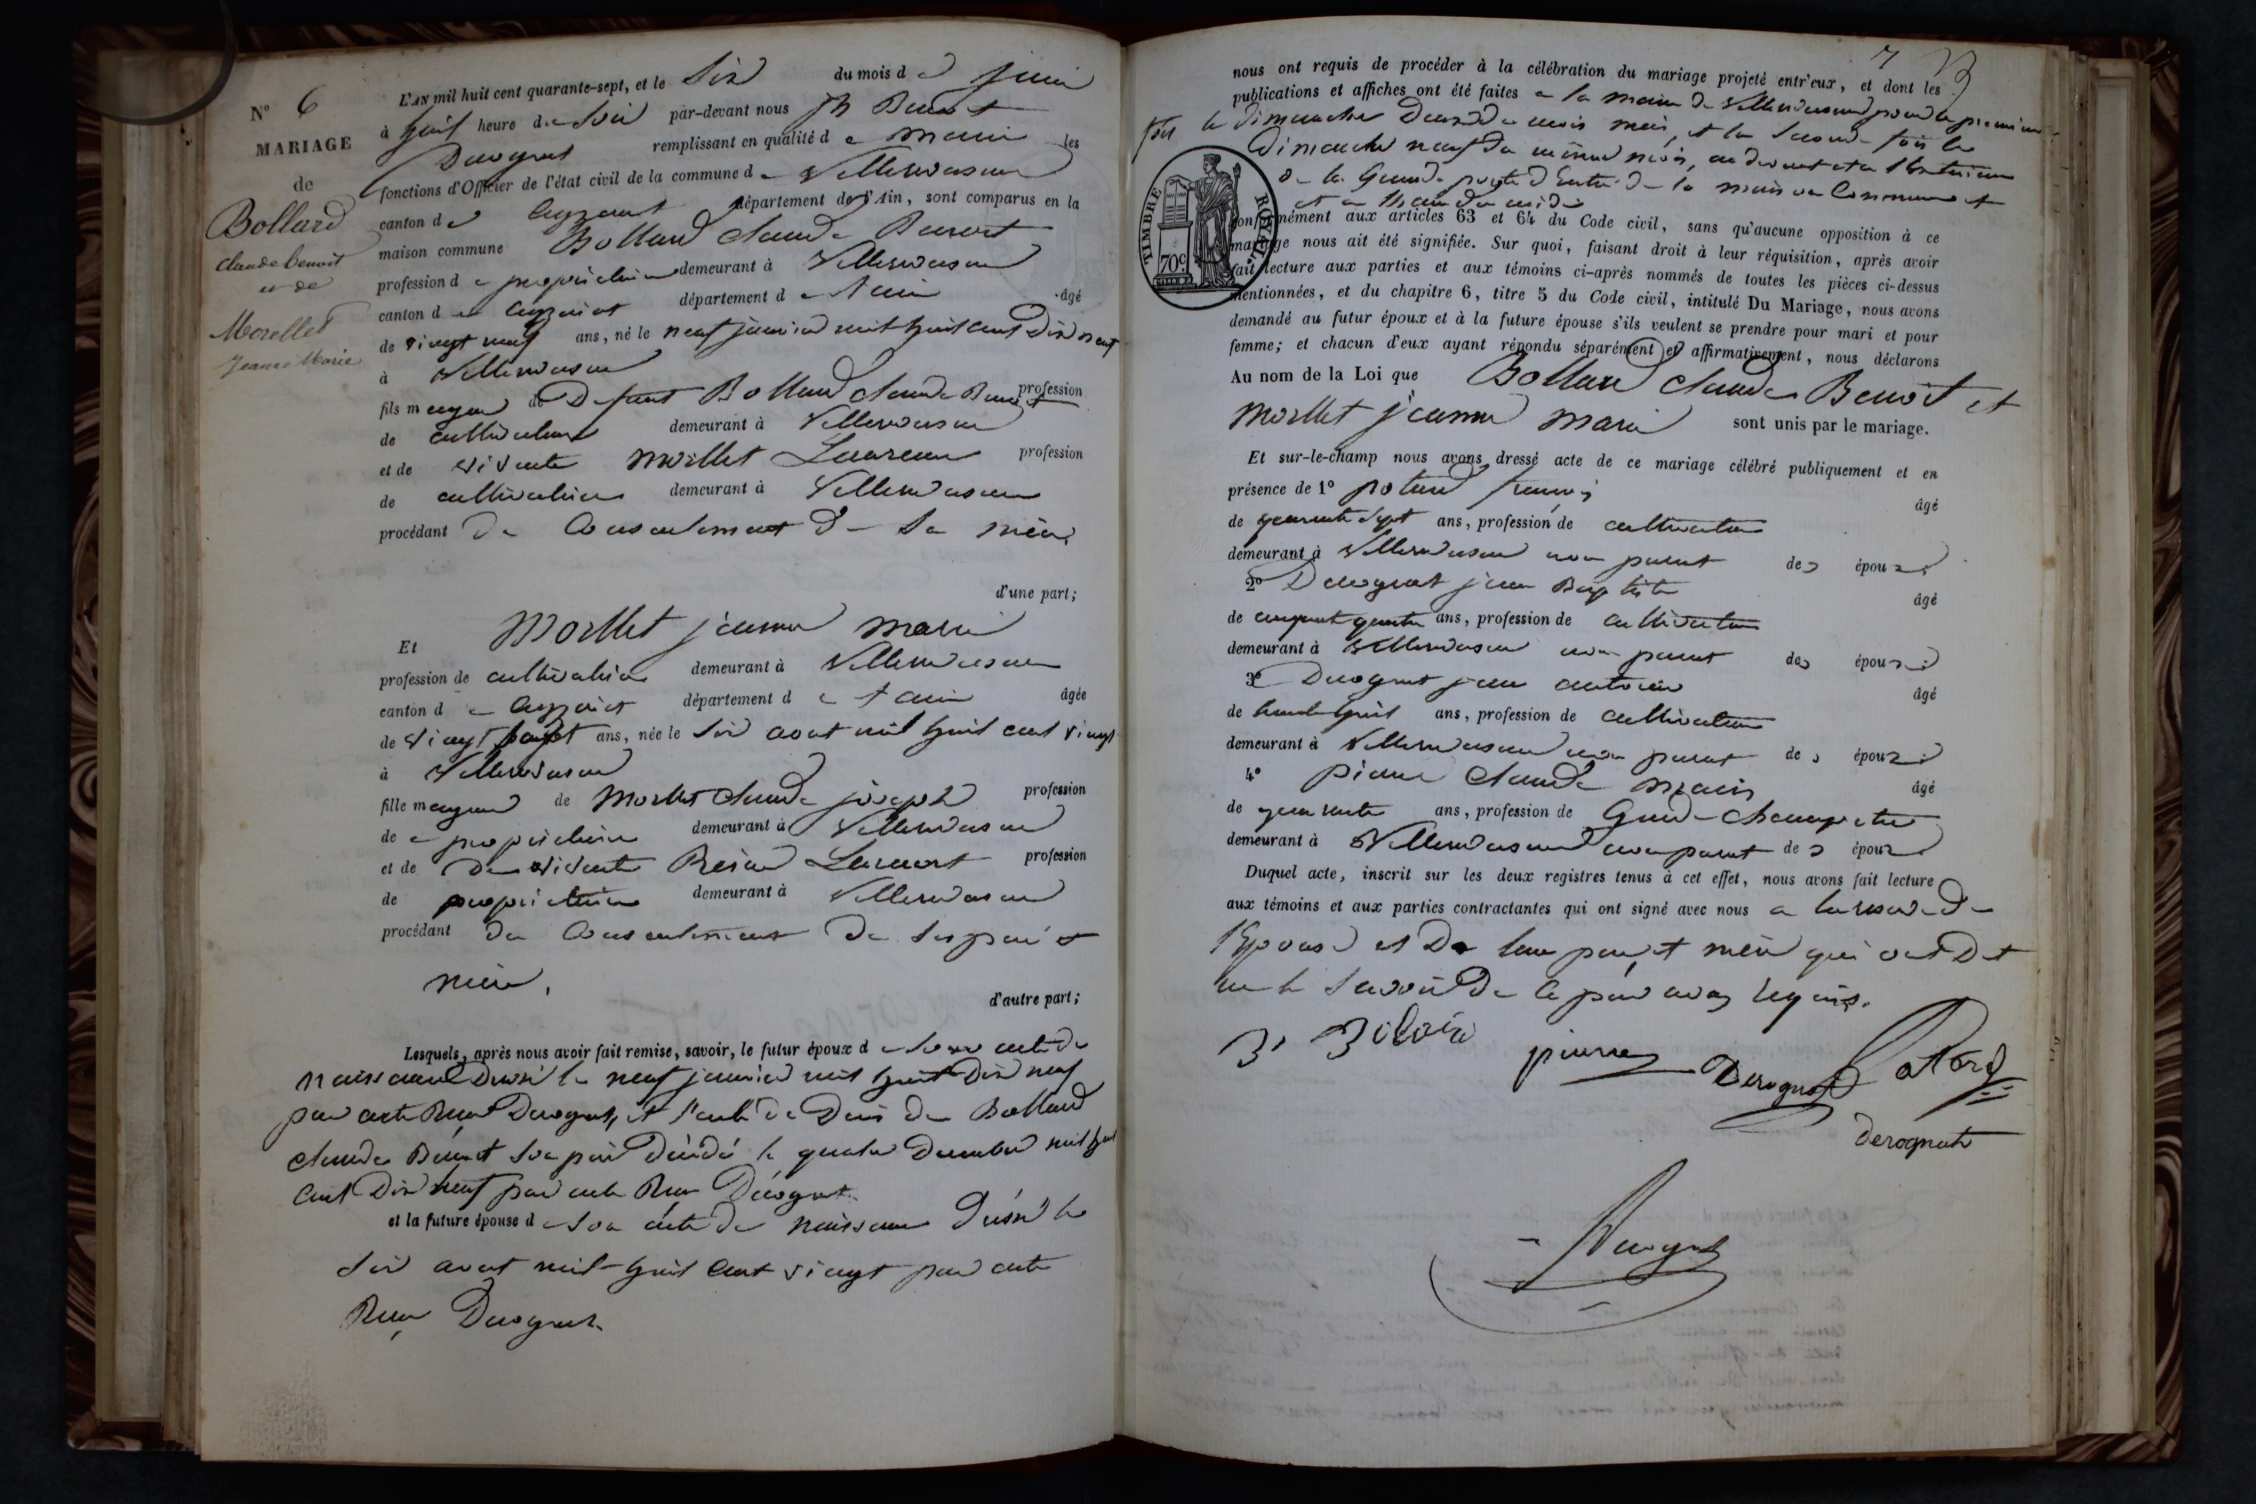 N° 6
MARIAGE
de
Bollard
Claude benoit
et de
Morellet
Jeanne Marie
L'AN mil huit cent quarante-sept, et le Six du mois de juin
à huit heure du Soir par-devant nous Benoit
Derognat remplissant en qualité de maire les
fonctions d'Officier de l'état civil de la commune de Villereversure
canton de Ceyzeriat département de l'Ain, sont comparus en la
maison commune Bollard Claude Benoit
profession de propriétaire demeurant à Villereversure
canton de Ceyzeriat département de l'ain âgé
de vingt neuf ans, né le neuf janvier mil huit cent Dix neuf
à Villereversure
fils majeur de Defunt Bollard Claude Benoit profession
de cultivateur demeurant à Villereversure
et de vivante Morellet Laurence profession
de cultivatrice demeurant à Villereversure
procédant du Consentement de Sa mère
d'une part;
Et Morellet jeanne marie
profession de cultivatrice demeurant à Villereversure
canton de Ceyzeriat département de l'ain âgée
de vingt sept ans, née le Six aout mil huit cent vingt
à Villereversure
fille majeure de Morellet Claude joseph profession
de propriétaire demeurant à Villereversure
et de vivante profession
de propriétaire demeurant à Villereversure
procédant du Consentement de Ses père et
mère.
d'autre part;
Lesquels, après nous avoir fait remise, savoir, le futur époux de Son acte de
naissance Dressé le neuf janvier mil huit Dix neuf
par acte Reçu Derognat, et l'acte de Décès de Bollard
Claude Benoit Son père Décédé le quatre Décembre mil huit
cent Dix neuf par acte Reçu Derognat.
et la future épouse de Son acte de naissance Dressé le
Six aout mil huit cent vingt par acte
Reçu Derognat.
7
nous ont requis de procéder à la célébration du mariage projeté entr'eux, et dont les
publications et affiches ont été faites a la mairie de Villereversure pour la première
fois le Dimanche Deux du mois mai, et la Seconde fois le
Dimanche neuf du même mois, au devant et a l'Extérieur
de la Grande porte d'Entrée de la maison Commune et
a Heure du midi
TIMBRE ROYAL
70c
conformément aux articles 63 et 64 du Code civil, sans qu'aucune opposition à ce
mariage nous ait été signifiée. Sur quoi, faisant droit à leur réquisition, après avoir
fait lecture aux parties et aux témoins ci-après nommés de toutes les pièces ci-dessus
mentionnées, et du chapitre 6, titre 5 du Code civil, intitulé Du Mariage, nous avons
demandé au futur époux et à la future épouse s'ils veulent se prendre pour mari et pour
femme; et chacun d'eux ayant répondu séparément et affirmativement, nous déclarons
Au nom de la Loi que Bollard Claude Benoit et
Morellet jeanne marie sont unis par le mariage.
Et sur-le-champ nous avons dressé acte de ce mariage célébré publiquement et en
présence de 1° potard françois âgé
de quarante Sept ans, profession de cultivateur
demeurant à Villereversure non parent des époux.
2° Derognat jean Baptiste âgé
de cinquante quatre ans, profession de cultivateur
demeurant à Villereversure non parent des époux.
3° Derognat jean antoine âgé
de trente huit ans, profession de cultivateur
demeurant à Villereversure non parent des époux.
4° pierre Claude marie âgé
de quarante ans, profession de Garde-Champetre
demeurant à Villereversure non parent des époux
Duquel acte, inscrit sur les deux registres tenus à cet effet, nous avons fait lecture
aux témoins et aux parties contractantes qui ont signé avec nous a la reserve de
l'Epouse et De leur père et mère qui ont Dit
ne le Savoir De ce par avoir requis.
pierre Derognat Potard
derognat
Derognat